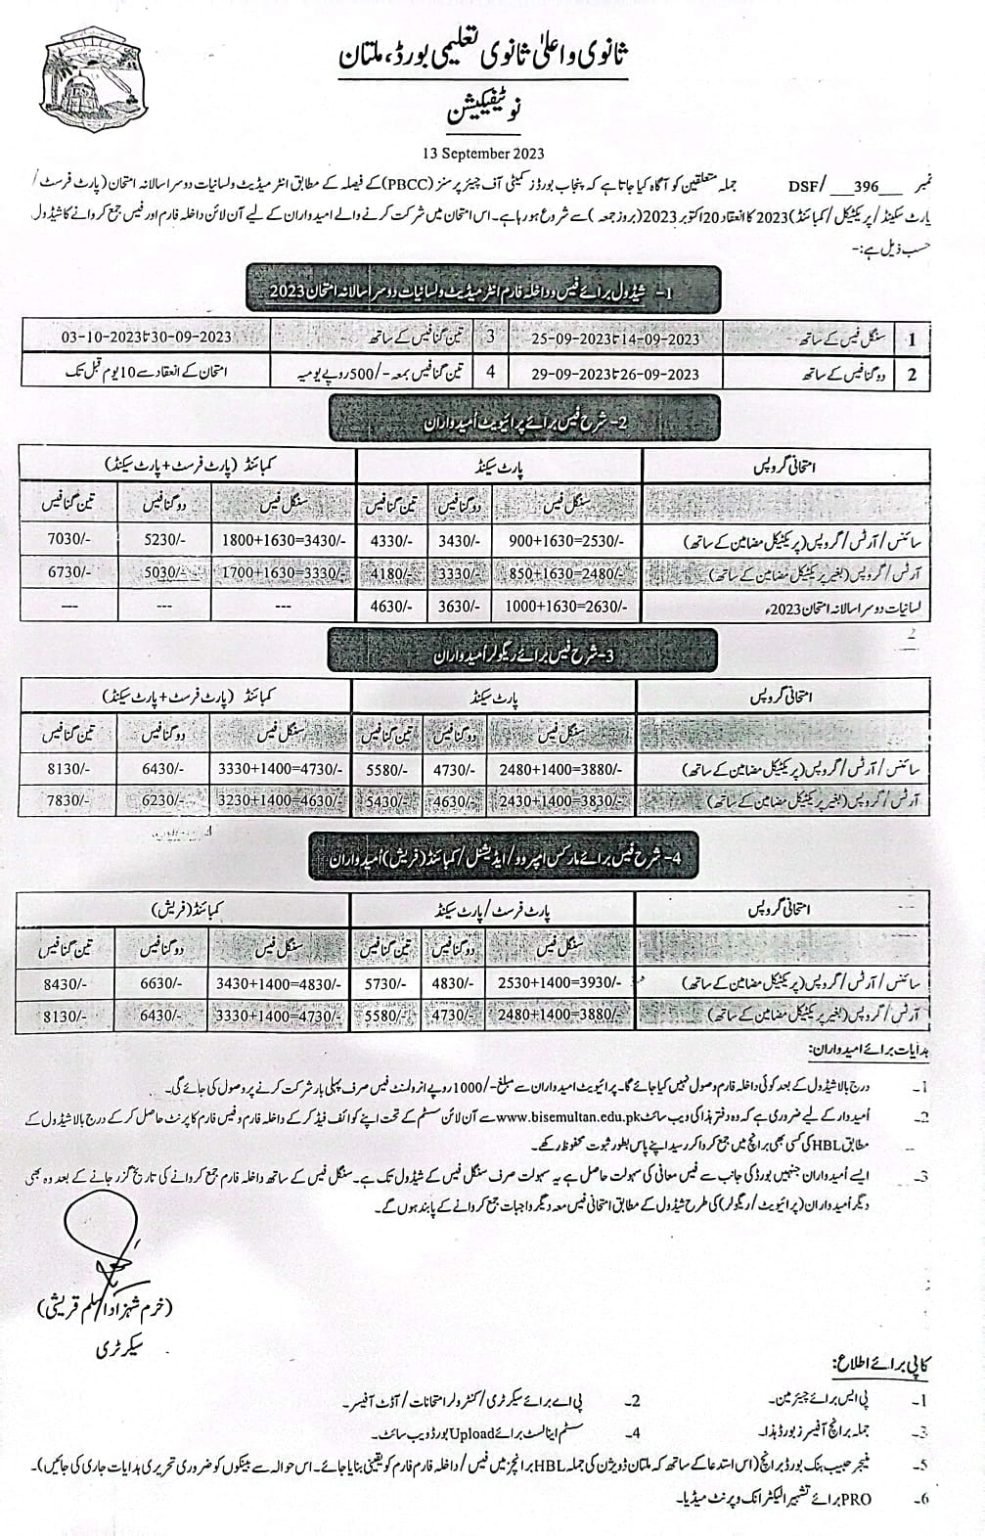 ثانوی و اعلیٰ ثانوی تعلیمی بورڈ، ملتان
نوٹیفیکیشن
13 September 2023
نمبر DSF/___396___ جملہ متعلقین کو آگاہ کیا جاتا ہے کہ پنجاب بورڈز کمیٹی آف چیئر پرسنز (PBCC) کے فیصلہ کے مطابق انٹر میڈیٹ و لسانیات دوسرا سالانہ امتحان (پارٹ فرسٹ/
پارٹ سیکنڈ/پریکٹیکل/کمبائنڈ) 2023 کا انعقاد 20 اکتوبر 2023 (بروز جمعہ) سے شروع ہو رہا ہے۔ اس امتحان میں شرکت کرنے والے امیدواران کے لیے آن لائن داخلہ فارم اور فیس جمع کروانے کا شیڈول
حسب ذیل ہے:-
1- شیڈول برائے فیس و داخلہ فارم انٹر میڈیٹ و لسانیات دوسرا سالانہ امتحان 2023
1 سنگل فیس کے ساتھ 14-09-2023 تا 25-09-2023 3 تین گنا فیس کے ساتھ 30-09-2023 تا 03-10-2023
2 دو گنا فیس کے ساتھ 26-09-2023 تا 29-09-2023 4 تین گنا فیس بمعہ -/500 روپے یومیہ امتحان کے انعقاد سے 10 یوم قبل تک
2- شرح فیس برائے پرائیویٹ اُمیدواران
امتحانی گروپس پارٹ سیکنڈ کمبائنڈ (پارٹ فرسٹ + پارٹ سیکنڈ)
سنگل فیس دو گنا فیس تین گنا فیس سنگل فیس دو گنا فیس تین گنا فیس
سائنس/آرٹس/گروپس (پریکٹیکل مضامین کے ساتھ) 900+1630=2530/- 3430/- 4330/- 1800+1630=3430/- 5230/- 7030/-
آرٹس/گروپس (بغیر پریکٹیکل مضامین کے ساتھ) 850+1630=2480/- 3330/- 4180/- 1700+1630=3330/- 5030/- 6730/-
لسانیات دوسرا سالانہ امتحان 2023ء 1000+1630=2630/- 3630/- 4630/- --- --- ---
3- شرح فیس برائے ریگولر اُمیدواران
امتحانی گروپس پارٹ سیکنڈ کمبائنڈ (پارٹ فرسٹ + پارٹ سیکنڈ)
سنگل فیس دو گنا فیس تین گنا فیس سنگل فیس دو گنا فیس تین گنا فیس
سائنس/آرٹس/گروپس (پریکٹیکل مضامین کے ساتھ) 2480+1400=3880/- 4730/- 5580/- 3330+1400=4730/- 6430/- 8130/-
آرٹس/گروپس (بغیر پریکٹیکل مضامین کے ساتھ) 2430+1400=3830/- 4630/- 5430/- 3230+1400=4630/- 6230/- 7830/-
4- شرح فیس برائے مارکس امپروو/ایڈیشنل/کمبائنڈ (فریش) اُمیدواران
امتحانی گروپس پارٹ فرسٹ/پارٹ سیکنڈ کمبائنڈ (فریش)
سنگل فیس دو گنا فیس تین گنا فیس سنگل فیس دو گنا فیس تین گنا فیس
سائنس/آرٹس/گروپس (پریکٹیکل مضامین کے ساتھ) 2530+1400=3930/- 4830/- 5730/- 3430+1400=4830/- 6630/- 8430/-
آرٹس/گروپس (بغیر پریکٹیکل مضامین کے ساتھ) 2480+1400=3880/- 4730/- 5580/- 3330+1400=4730/- 6430/- 8130/-
ہدایات برائے امیدواران:
1- درج بالا شیڈول کے بعد کوئی داخلہ فارم وصول نہیں کیا جائے گا۔ پرائیویٹ امیدواران سے مبلغ -/1000 روپے انرولمنٹ فیس صرف پہلی بار شرکت کرنے پر وصول کی جائے گی۔
2- اُمیدوار کے لیے ضروری ہے کہ وہ دفتر ہذا کی ویب سائٹ www.bisemultan.edu.pk سے آن لائن سسٹم کے تحت اپنے کوائف فیڈ کر کے داخلہ فارم و فیس فارم کا پرنٹ حاصل کر کے درج بالا شیڈول کے
مطابق HBL کی کسی بھی برانچ میں جمع کروا کر رسید اپنے پاس بطور ثبوت محفوظ رکھے۔
3- ایسے اُمیدواران جنہیں بورڈ کی جانب سے فیس معافی کی سہولت حاصل ہے یہ سہولت صرف سنگل فیس کے شیڈول تک ہے۔ سنگل فیس کے ساتھ داخلہ فارم جمع کروانے کی تاریخ گزر جانے کے بعد وہ بھی
دیگر اُمیدواران (پرائیویٹ/ریگولر) کی طرح شیڈول کے مطابق امتحانی فیس معہ دیگر واجبات جمع کروانے کے پابند ہوں گے۔
(خرم شہزاد اسلم قریشی)
سیکرٹری
کاپی برائے اطلاع:
1- پی ایس برائے چیئرمین۔ 2- پی اے برائے سیکرٹری/کنٹرولر امتحانات/آڈٹ آفیسر۔
3- جملہ برانچ آفیسرز بورڈ ہذا۔ 4- سسٹم اینالسٹ برائے Upload بورڈ ویب سائٹ۔
5- منیجر حبیب بنک بورڈ برانچ (اس استدعا کے ساتھ کہ ملتان ڈویژن کی جملہ HBL برانچز میں فیس/داخلہ فارم فارم کو یقینی بنایا جائے۔ اس حوالہ سے بینکوں کو ضروری تحریری ہدایات جاری کی جائیں)۔
6- PRO برائے تشہیر الیکٹرانک و پرنٹ میڈیا۔